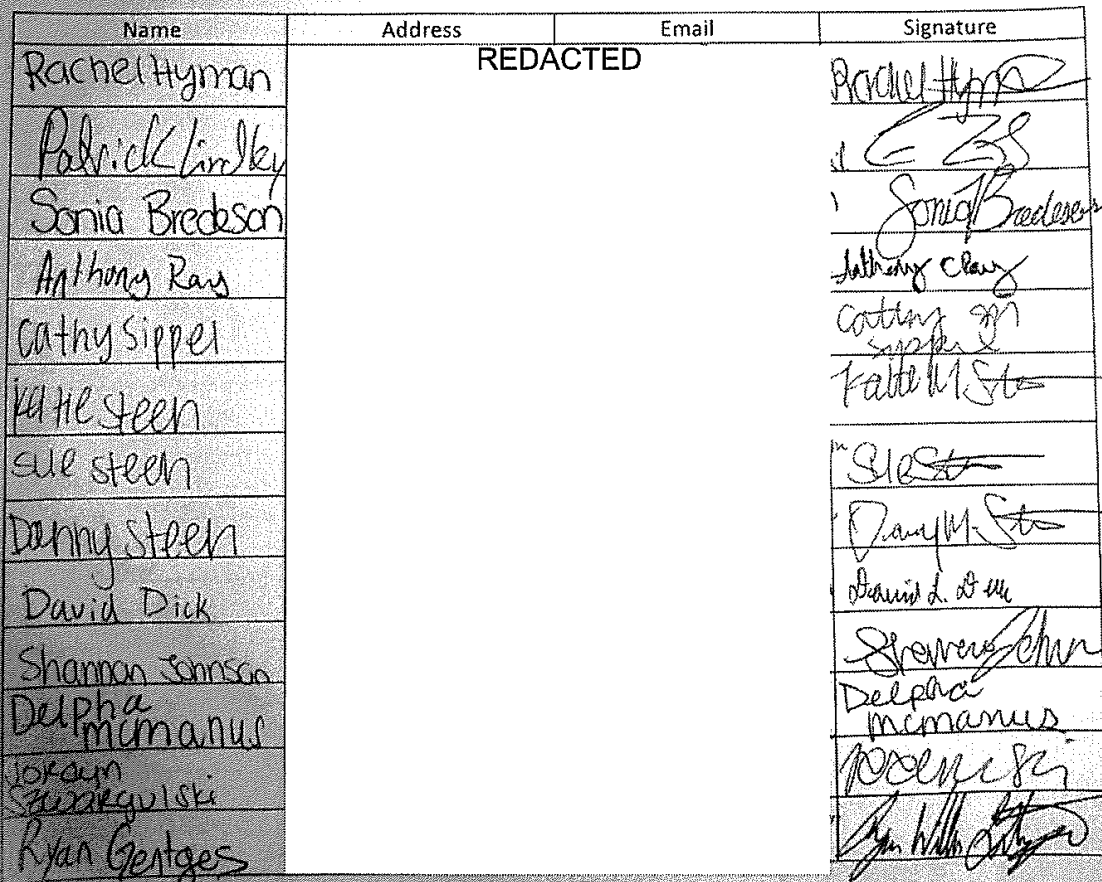 Name Address Email Signature
REDACTED
Rachel Hyman Rachel Hym
Patrick Lindley
Sonia Bredeson Sonia Bredeson
Anthony Ray Anthony Ray
Cathy Sippel Cathy Sippel
Katie Steen Katie M St
Sue Steen Sue St
Danny Steen Danny M. St
David Dick David L. Dick
Shannon Johnson
Delpha Delpha
mcmanus mcmanus
Szwargulski
Ryan Gentges